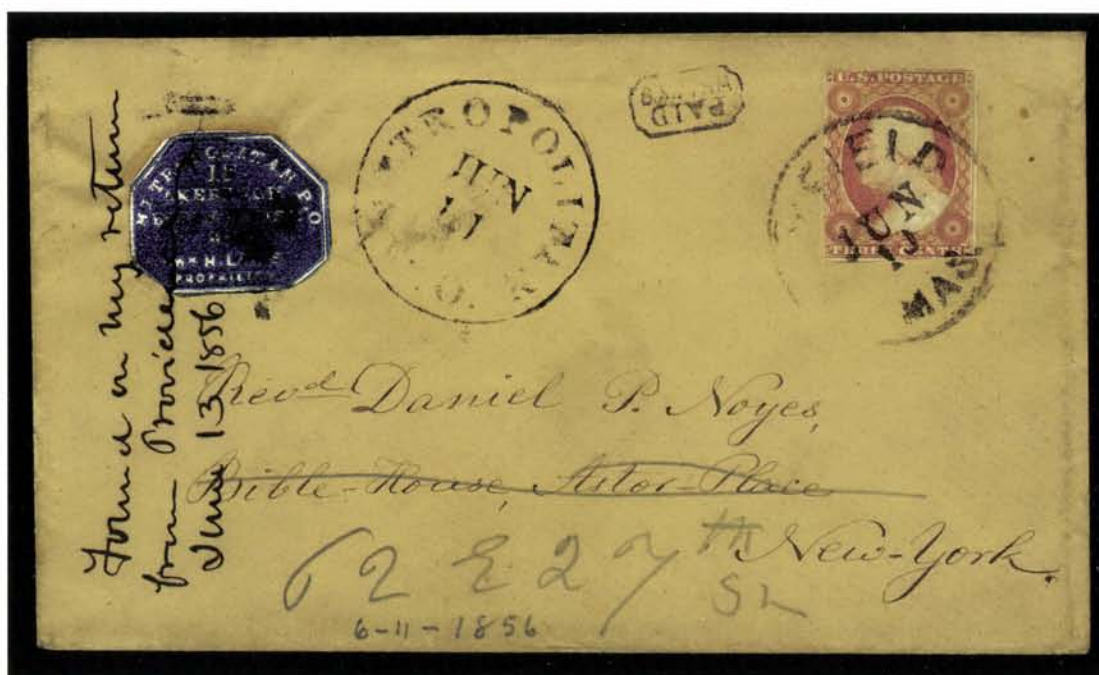 Found on my return
from
June 13 1856
METROPOLITAN P.O
Wm H. L
PROPRIETOR
METROPOLITAN
P.O.
JUN
11
PAID
U.S. POSTAGE
THREE CENTS
FIELD
JUN
10
MASS
Revd Daniel P. Noyes,
Bible-House, Astor-Place
New-York.
62 E 27th
St
6-11-1856